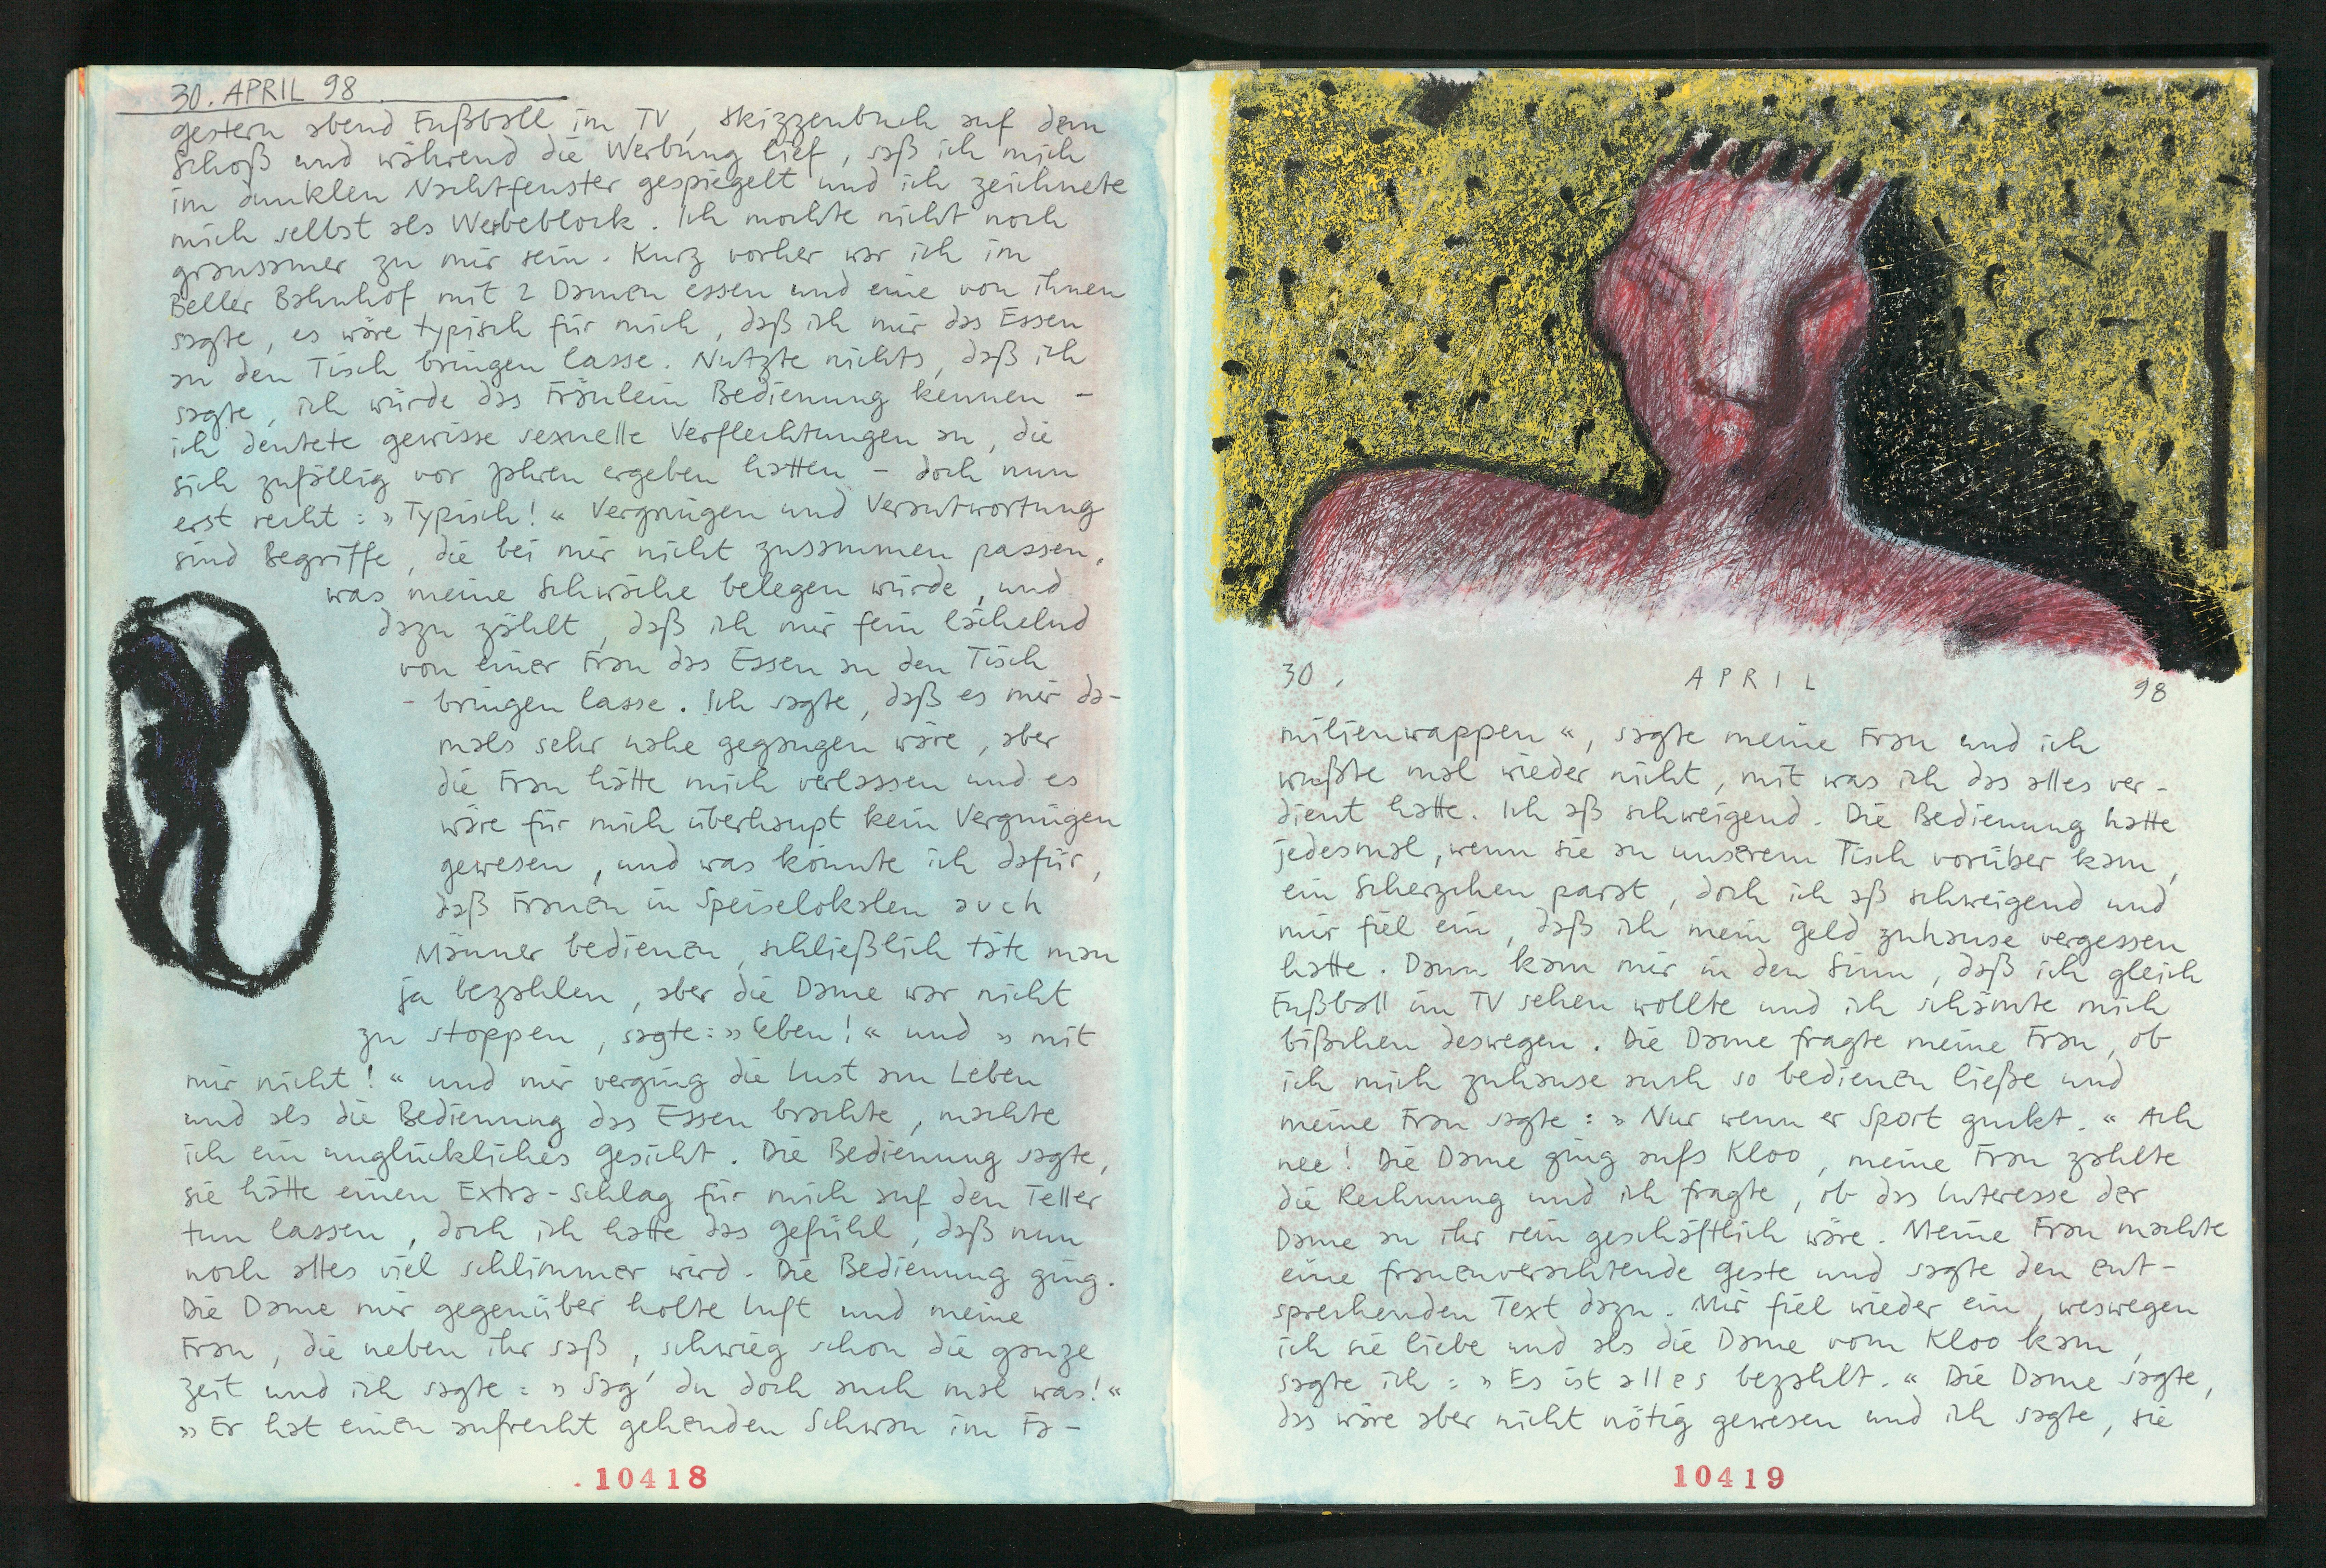 30. APRIL 98
gestern abend Fußball im TV, Skizzenbuch auf dem
Schoß und während die Werbung lief, saß ich mich
im dunklen Nachtfenster gespiegelt und ich zeichnete
mich selbst als Werbeblock. Ich mochte nicht noch
grausamer zu mir sein. Kurz vorher war ich im
Beller Bahnhof mit 2 Damen essen und eine von ihnen
sagte, es wäre typisch für mich, daß ich mir das Essen
an den Tisch bringen lasse. Nutzte nichts, daß ich
sagte, ich würde das Fräulein Bedienung kennen -
ich deutete gewisse sexuelle Verflechtungen an, die
sich zufällig vor Jahren ergeben hatten - doch nun
erst recht: »Typisch!« Vergnügen und Verantwortung
sind Begriffe, die bei mir nicht zusammen passen,
was meine Schwäche belegen würde, und
dazu zählt, daß ich mir fein lächelnd
von einer Frau das Essen an den Tisch
bringen lasse. Ich sagte, daß es mir da-
mals sehr nahe gegangen wäre, aber
die Frau hätte mich verlassen und es
wäre für mich überhaupt kein Vergnügen
gewesen, und was könnte ich dafür,
daß Frauen in Speiselokalen auch
Männer bedienen, schließlich täte man
ja bezahlen, aber die Dame war nicht
zu stoppen, sagte: »Eben!« und »mit
mir nicht!« und mir verging die Lust am Leben
und als die Bedienung das Essen brachte, machte
ich ein unglückliches Gesicht. Die Bedienung sagte,
sie hätte einen Extra-Schlag für mich auf den Teller
tun lassen, doch ich hatte das Gefühl, daß nun
noch alles viel schlimmer wird. Die Bedienung ging.
Die Dame mir gegenüber holte Luft und meine
Frau, die neben ihr saß, schwieg schon die ganze
Zeit und ich sagte: »Sag' du doch auch mal was!«
»Er hat einen aufrecht gehenden Schwan im Fa-
10418
30. APRIL 98
milienwappen«, sagte meine Frau und ich
wußte mal wieder nicht, mit was ich das alles ver-
dient hatte. Ich aß schweigend. Die Bedienung hatte
jedesmal, wenn sie an unserem Tisch vorüber kam,
ein Scherzchen parat, doch ich aß schweigend und
mir fiel ein, daß ich mein Geld zuhause vergessen
hatte. Dann kam mir in den Sinn, daß ich gleich
Fußball im TV sehen wollte und ich schämte mich
bißchen deswegen. Die Dame fragte meine Frau, ob
ich mich zuhause auch so bedienen ließe und
meine Frau sagte: »Nur wenn er Sport guckt.« Ach
nee! Die Dame ging aufs Kloo, meine Frau zahlte
die Rechnung und ich fragte, ob das Interesse der
Dame an ihr rein geschäftlich wäre. Meine Frau machte
eine frauenverachtende Geste und sagte den ent-
sprechenden Text dazu. Mir fiel wieder ein, weswegen
ich sie liebe und als die Dame vom Kloo kam,
sagte ich: »Es ist alles bezahlt.« Die Dame sagte,
das wäre aber nicht nötig gewesen und ich sagte, sie
10419